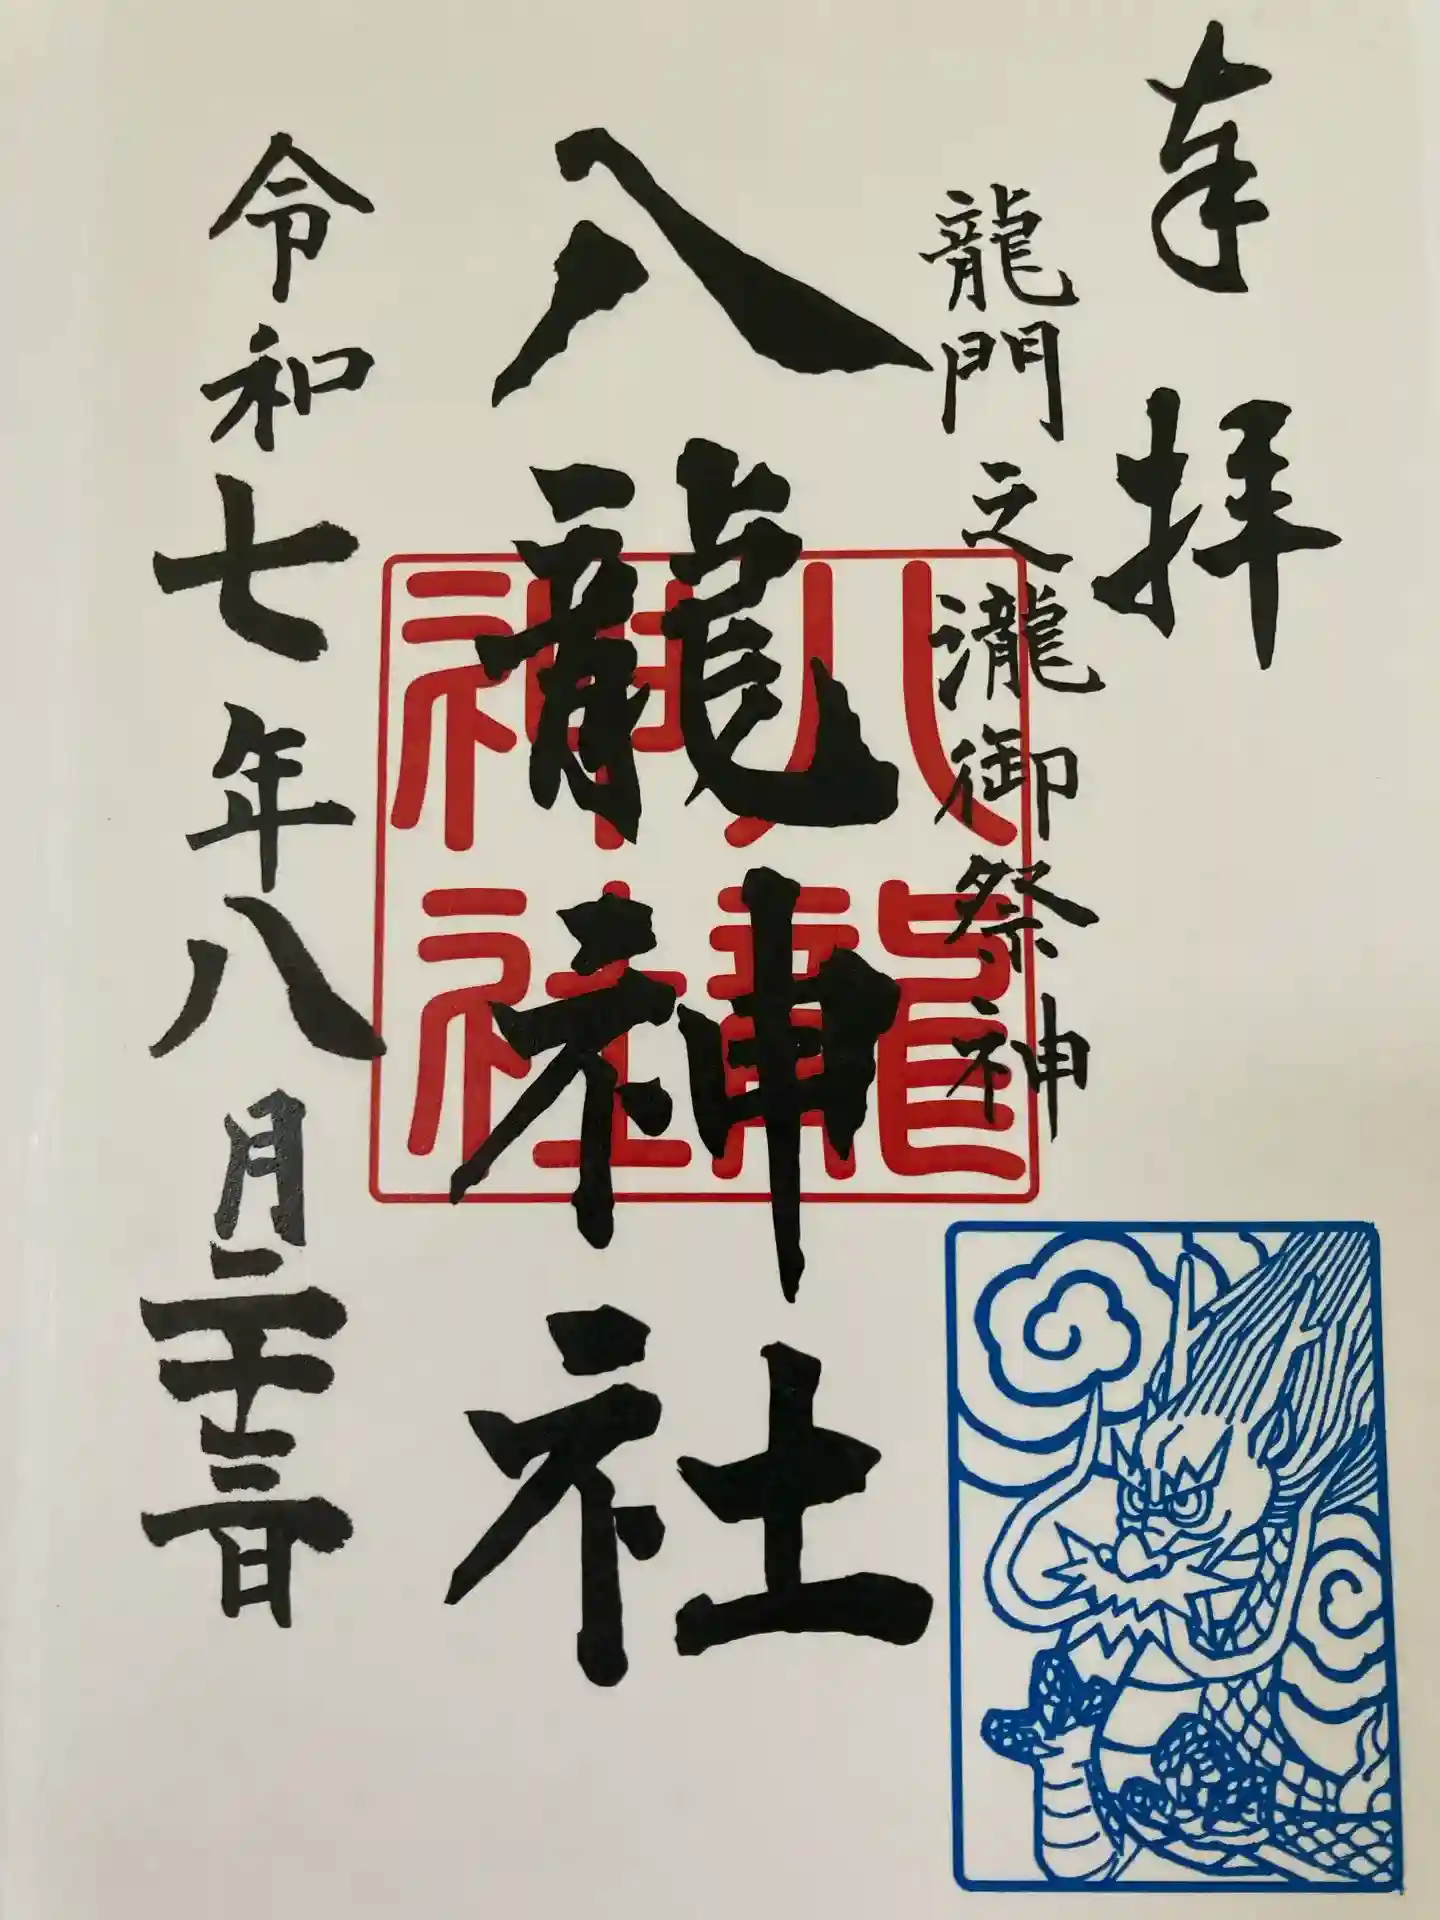 奉拝
龍門之瀧御祭神
八龍神社
八龍
神社
令和七年八月二十三日